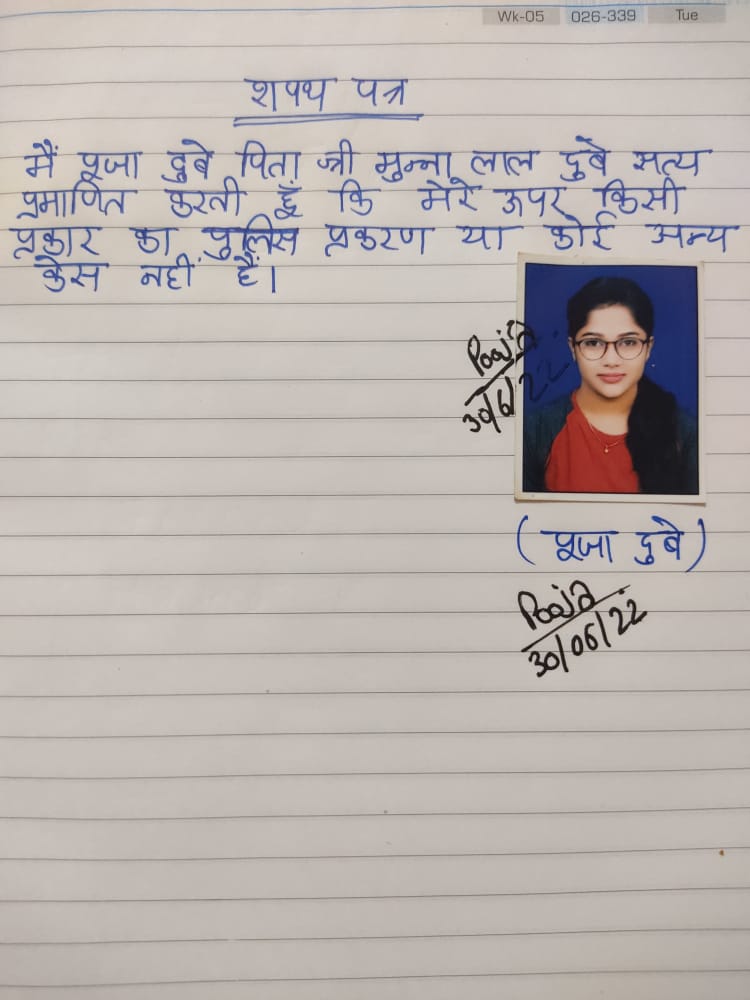 Wk-05 026-339 Tue
शपथ पत्र
मैं पूजा दुबे पिता श्री मुन्ना लाल दुबे सत्य
प्रमाणित करती हूँ कि मेरे ऊपर किसी
प्रकार का पुलिस प्रकरण या कोई अन्य
केस नहीं है।
Pooja
30/6/22
(पूजा दुबे)
Pooja
30/06/22